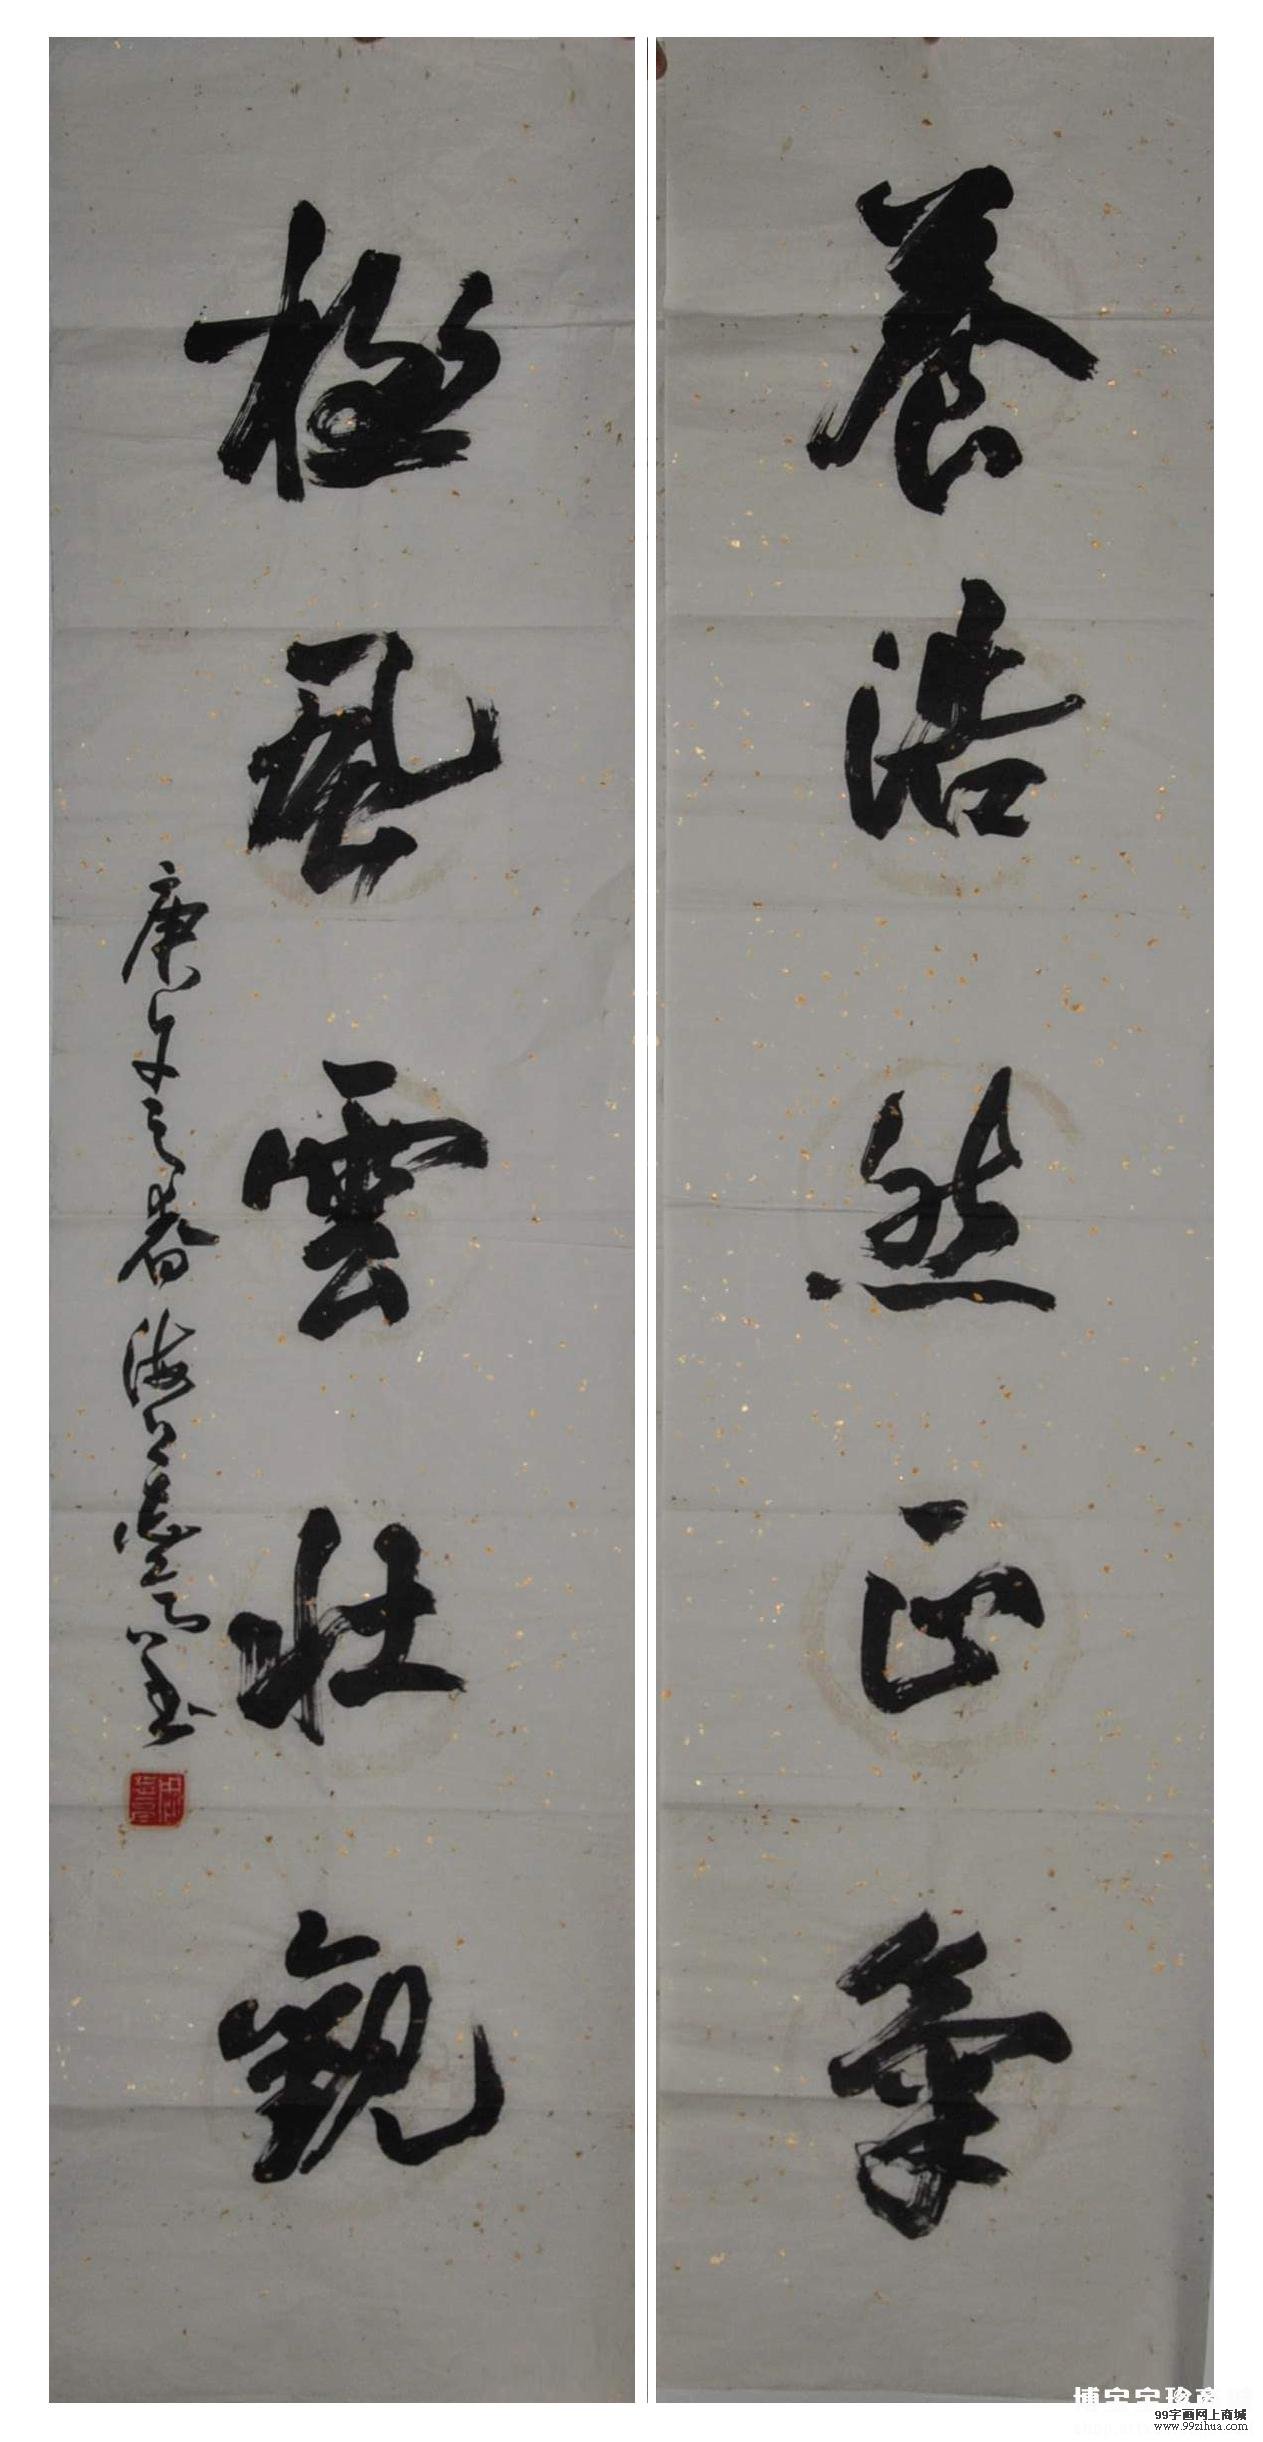 養浩然正氣
極風雲壯觀
庚午之春
博宝宝珍商城
99字画网上商城
www.99zihua.com